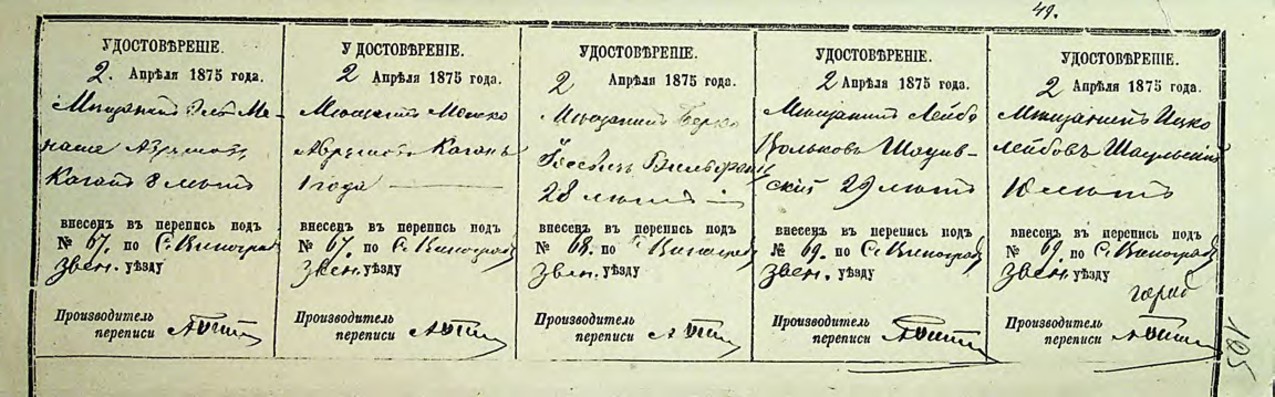 49.
УДОСТОВѢРЕНІЕ.
2. Апрѣля 1875 года.
Мѣщанинъ Ме-
наше
Каганъ 8 лѣтъ
внесенъ въ перепись подъ
№ 67. по С. Виноград
Звен. уѣзду
Производитель
переписи
УДОСТОВѢРЕНІЕ.
2 Апрѣля 1875 года.
Мѣщанинъ Мошко
Каганъ
1 года
внесенъ въ перепись подъ
№ 67. по С. Виноград
Звен. уѣзду
Производитель
переписи
УДОСТОВѢРЕНІЕ.
2 Апрѣля 1875 года.
Мѣщанинъ Берко
28 лѣтъ
внесенъ въ перепись подъ
№ 68. по С. Виноград
Звен. уѣзду
Производитель
переписи
УДОСТОВѢРЕНІЕ.
2 Апрѣля 1875 года.
Мѣщанинъ Лейба
Вольковъ Шаулв-
скій 29 лѣтъ
внесенъ въ перепись подъ
№ 69. по С. Виноград
Звен. уѣзду
Производитель
переписи
УДОСТОВѢРЕНІЕ.
2 Апрѣля 1875 года.
Мѣщанинъ Ицко
Лейбовъ Шаульскій
10 лѣтъ
внесенъ въ перепись подъ
№ 69. по С. Виноград
Звен. уѣзду
Производитель
переписи
105